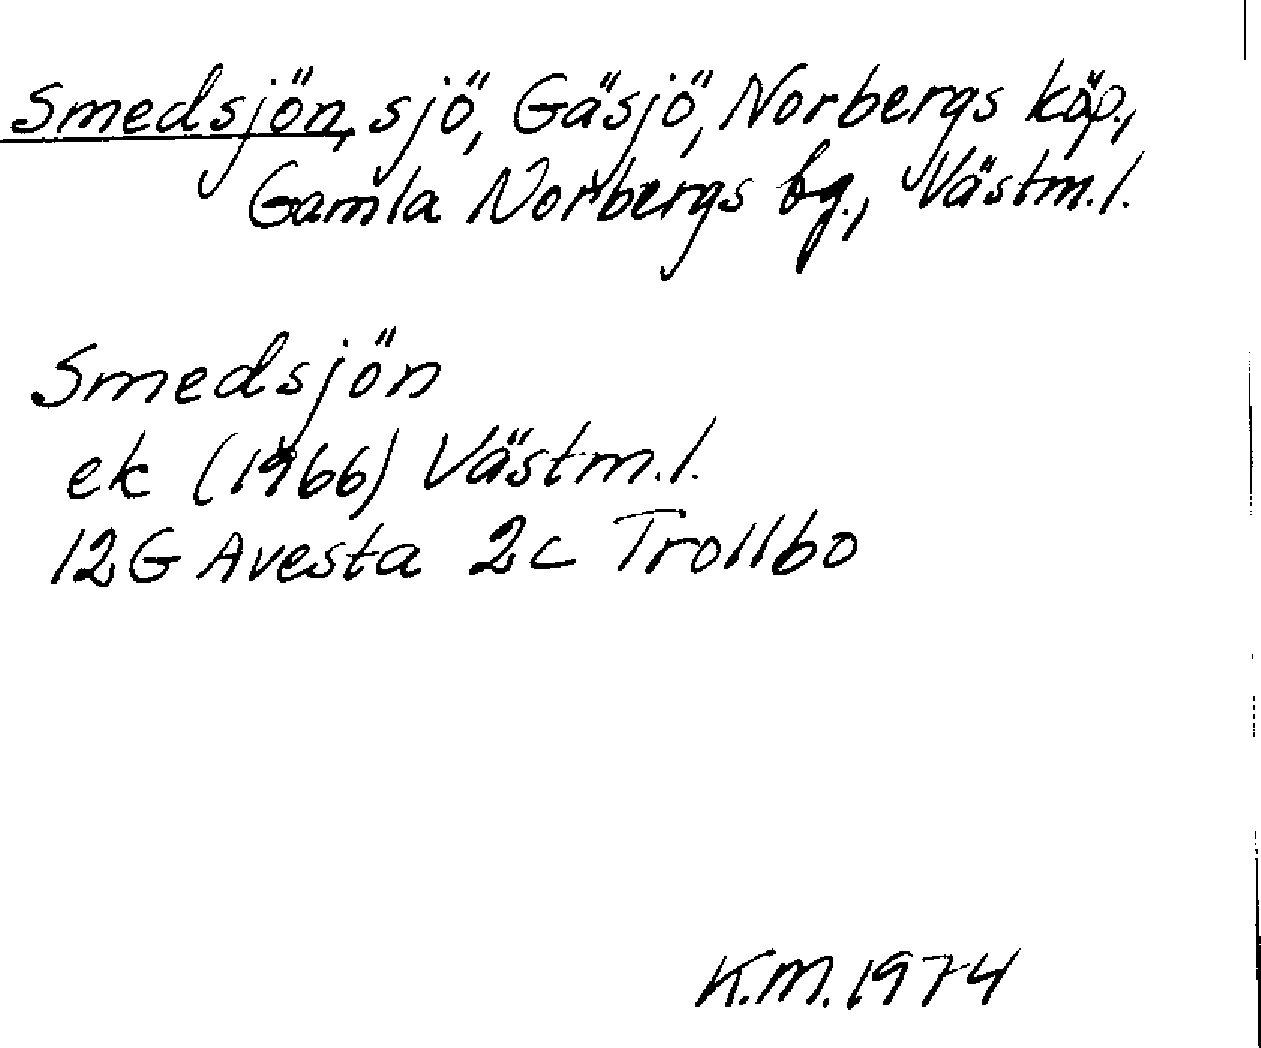 Smedsjön, sjö, Gäsjö, Norbergs köp.,
Gamla Norbergs bg., Västm.l.
Smedsjön
ek (1966) Västm.l.
12G Avesta 2c Trollbo
K.M. 1974